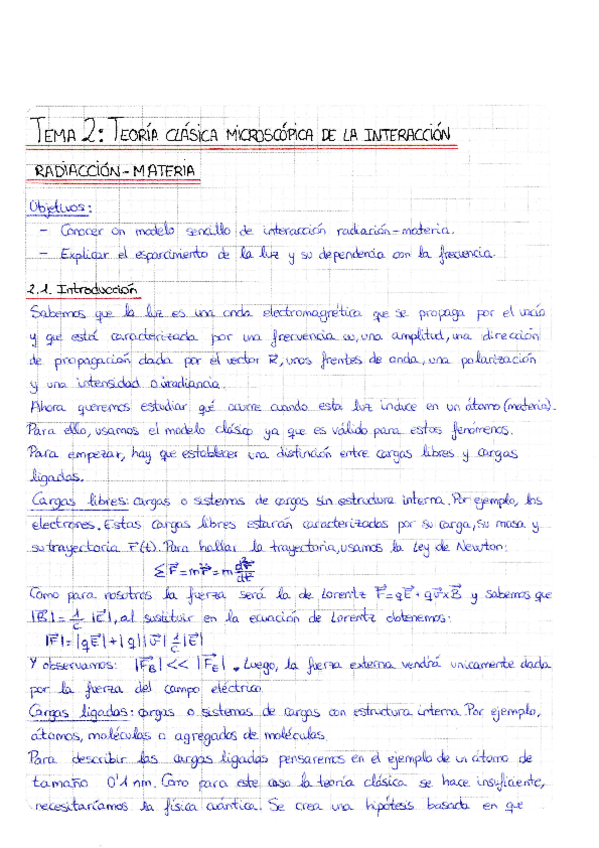 TEMA 2: TEORÍA CLÁSICA MICROSCÓPICA DE LA INTERACCIÓN
RADIACCIÓN-MATERIA
Objetivos:
- Conocer un modelo sencillo de interacción radiación-materia.
- Explicar el esparcimiento de la luz y su dependencia con la frecuencia.
2.1. Introducción
Sabemos que la luz es una onda electromagnética que se propaga por el vacío
y que está caracterizada por una frecuencia ω, una amplitud, una dirección
de propagación dada por el vector k⃗, unos frentes de onda, una polarización
y una intensidad o irradiancia.
Ahora queremos estudiar qué ocurre cuando esta luz induce en un átomo (materia).
Para ello, usamos el modelo clásico ya que es válido para estos fenómenos.
Para empezar, hay que establecer una distinción entre cargas libres y cargas
ligadas.
Cargas libres: cargas o sistemas de cargas sin estructura interna. Por ejemplo, los
electrones. Estas cargas libres estarán caracterizadas por su carga, su masa y
su trayectoria r⃗(t). Para hallar la trayectoria, usamos la Ley de Newton:
ΣF⃗ = m r̈⃗ = m d²r⃗/dt²
Como para nosotros la fuerza será la de Lorentz F⃗ = qE⃗ + qv⃗ x B⃗ y sabemos que
|B⃗| = 1/c |E⃗|, al sustituir en la ecuación de Lorentz obtenemos:
|F⃗| = |qE⃗| + |q||v⃗| 1/c |E⃗|
Y observamos: |F⃗_B| << |F⃗_E|. Luego, la fuerza externa vendrá unicamente dada
por la fuerza del campo eléctrico.
Cargas ligadas: cargas o sistemas de cargas con estructura interna. Por ejemplo,
átomos, moléculas o agregados de moléculas.
Para describir las cargas ligadas pensaremos en el ejemplo de un átomo de
tamaño 0'1 nm. Como para este caso la teoría clásica se hace insuficiente,
necesitaríamos la física cuántica. Se crea una hipótesis basada en que